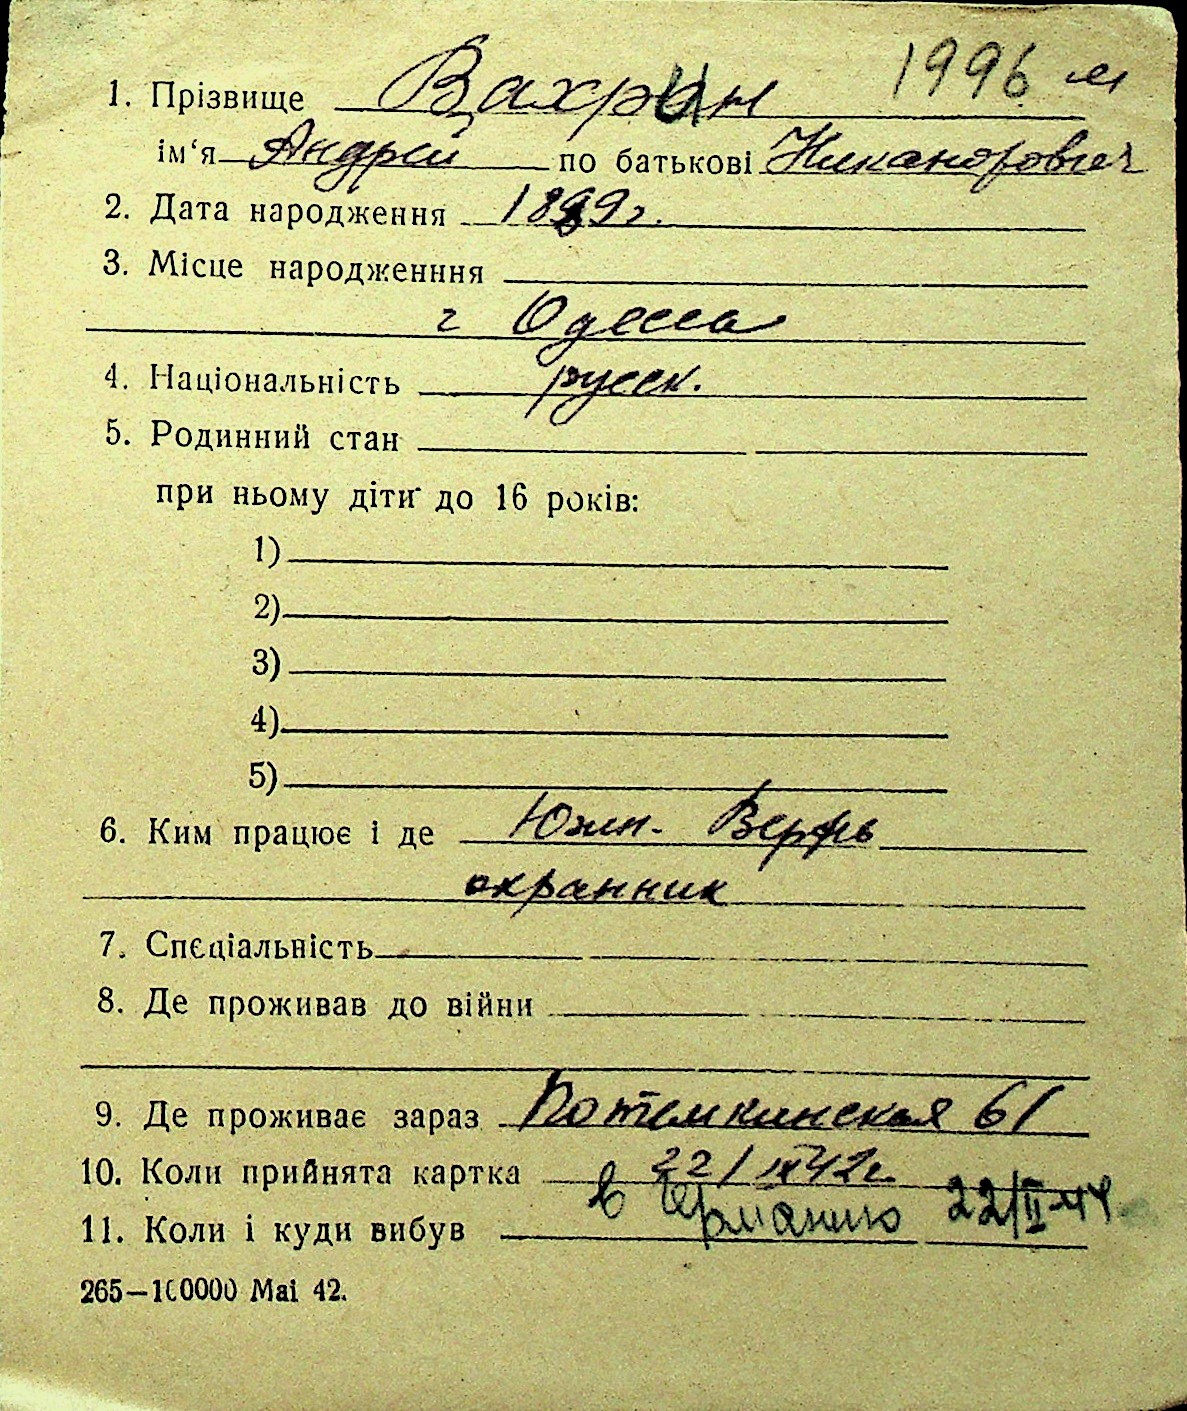 1996 м
1. Прізвище Вахрин
ім‘я Андрей по батькові Никанорович
2. Дата народження 1889 г.
3. Місце народженння
г Одесса
4. Національність русск.
5. Родинний стан
при ньому діти до 16 років:
1)
2)
3)
4)
5)
6. Ким працює і де Южн. Верфь
охранник
7. Спеціальність
8. Де проживав до війни
9. Де проживає зараз Потемкинская 61
10. Коли прийнята картка 22/IX 42г.
11. Коли і куди вибув в Германию 22/II-44
265—100000 Mai 42.